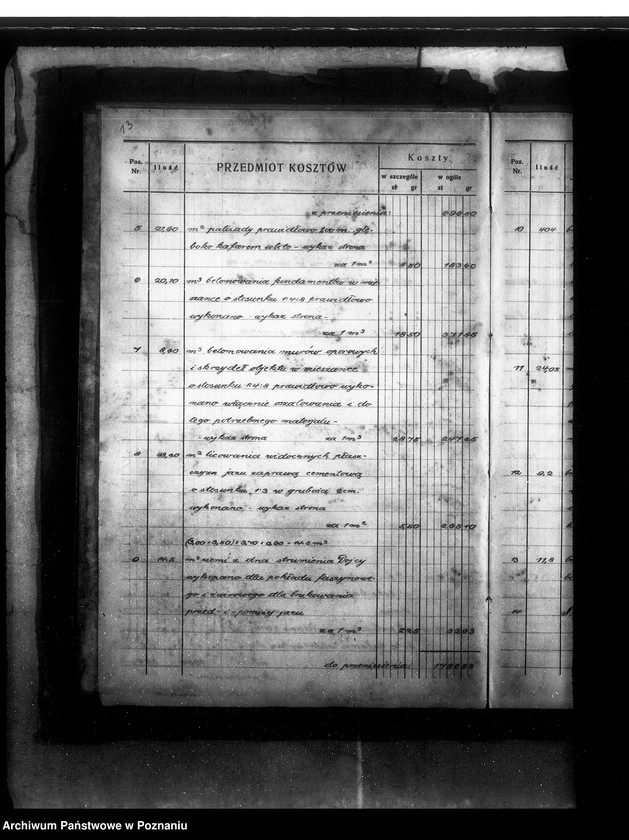 13
Poz. Nr.
Ilość
PRZEDMIOT KOSZTÓW
Koszty
w szczególe
w ogóle
zł gr
zł gr
Poz. Nr.
Ilość
z przeniesienia:
5 m² palisady prawidłowo
boko kafarem wbito - wykaz strona
za 1 m²
6 20,10 m³ betonowania fundamentów w mie-
szance o stosunku 1:4:8 prawidłowo
wykonano - wykaz strona -
za 1 m³ 18 50
7 m³ betonowania murów oporowych
i skrzydeł objektu w mieszance
o stosunku 1:4:8 prawidłowo wyko-
nano włącznie oszalowania i do
tego potrzebnego materjału -
wykaz strona za 1 m³ 28 75
m² licowania widocznych płasz-
czyzn jazu zaprawą cementową
o stosunku 1:3 w grubości 2 cm.
wykonano - wykaz strona
za 1 m²
14,5 m³ ziemi z dna strumienia Dojcy
wykopano dla pokładu faszynowe-
go i żwirowego dla brukowania
przed - i - poniżej jazu
za 1 m³ 2 25
do przeniesienia:
10 404
11 24,05
12 9,2
13 11,8
14
Archiwum Państwowe w Poznaniu